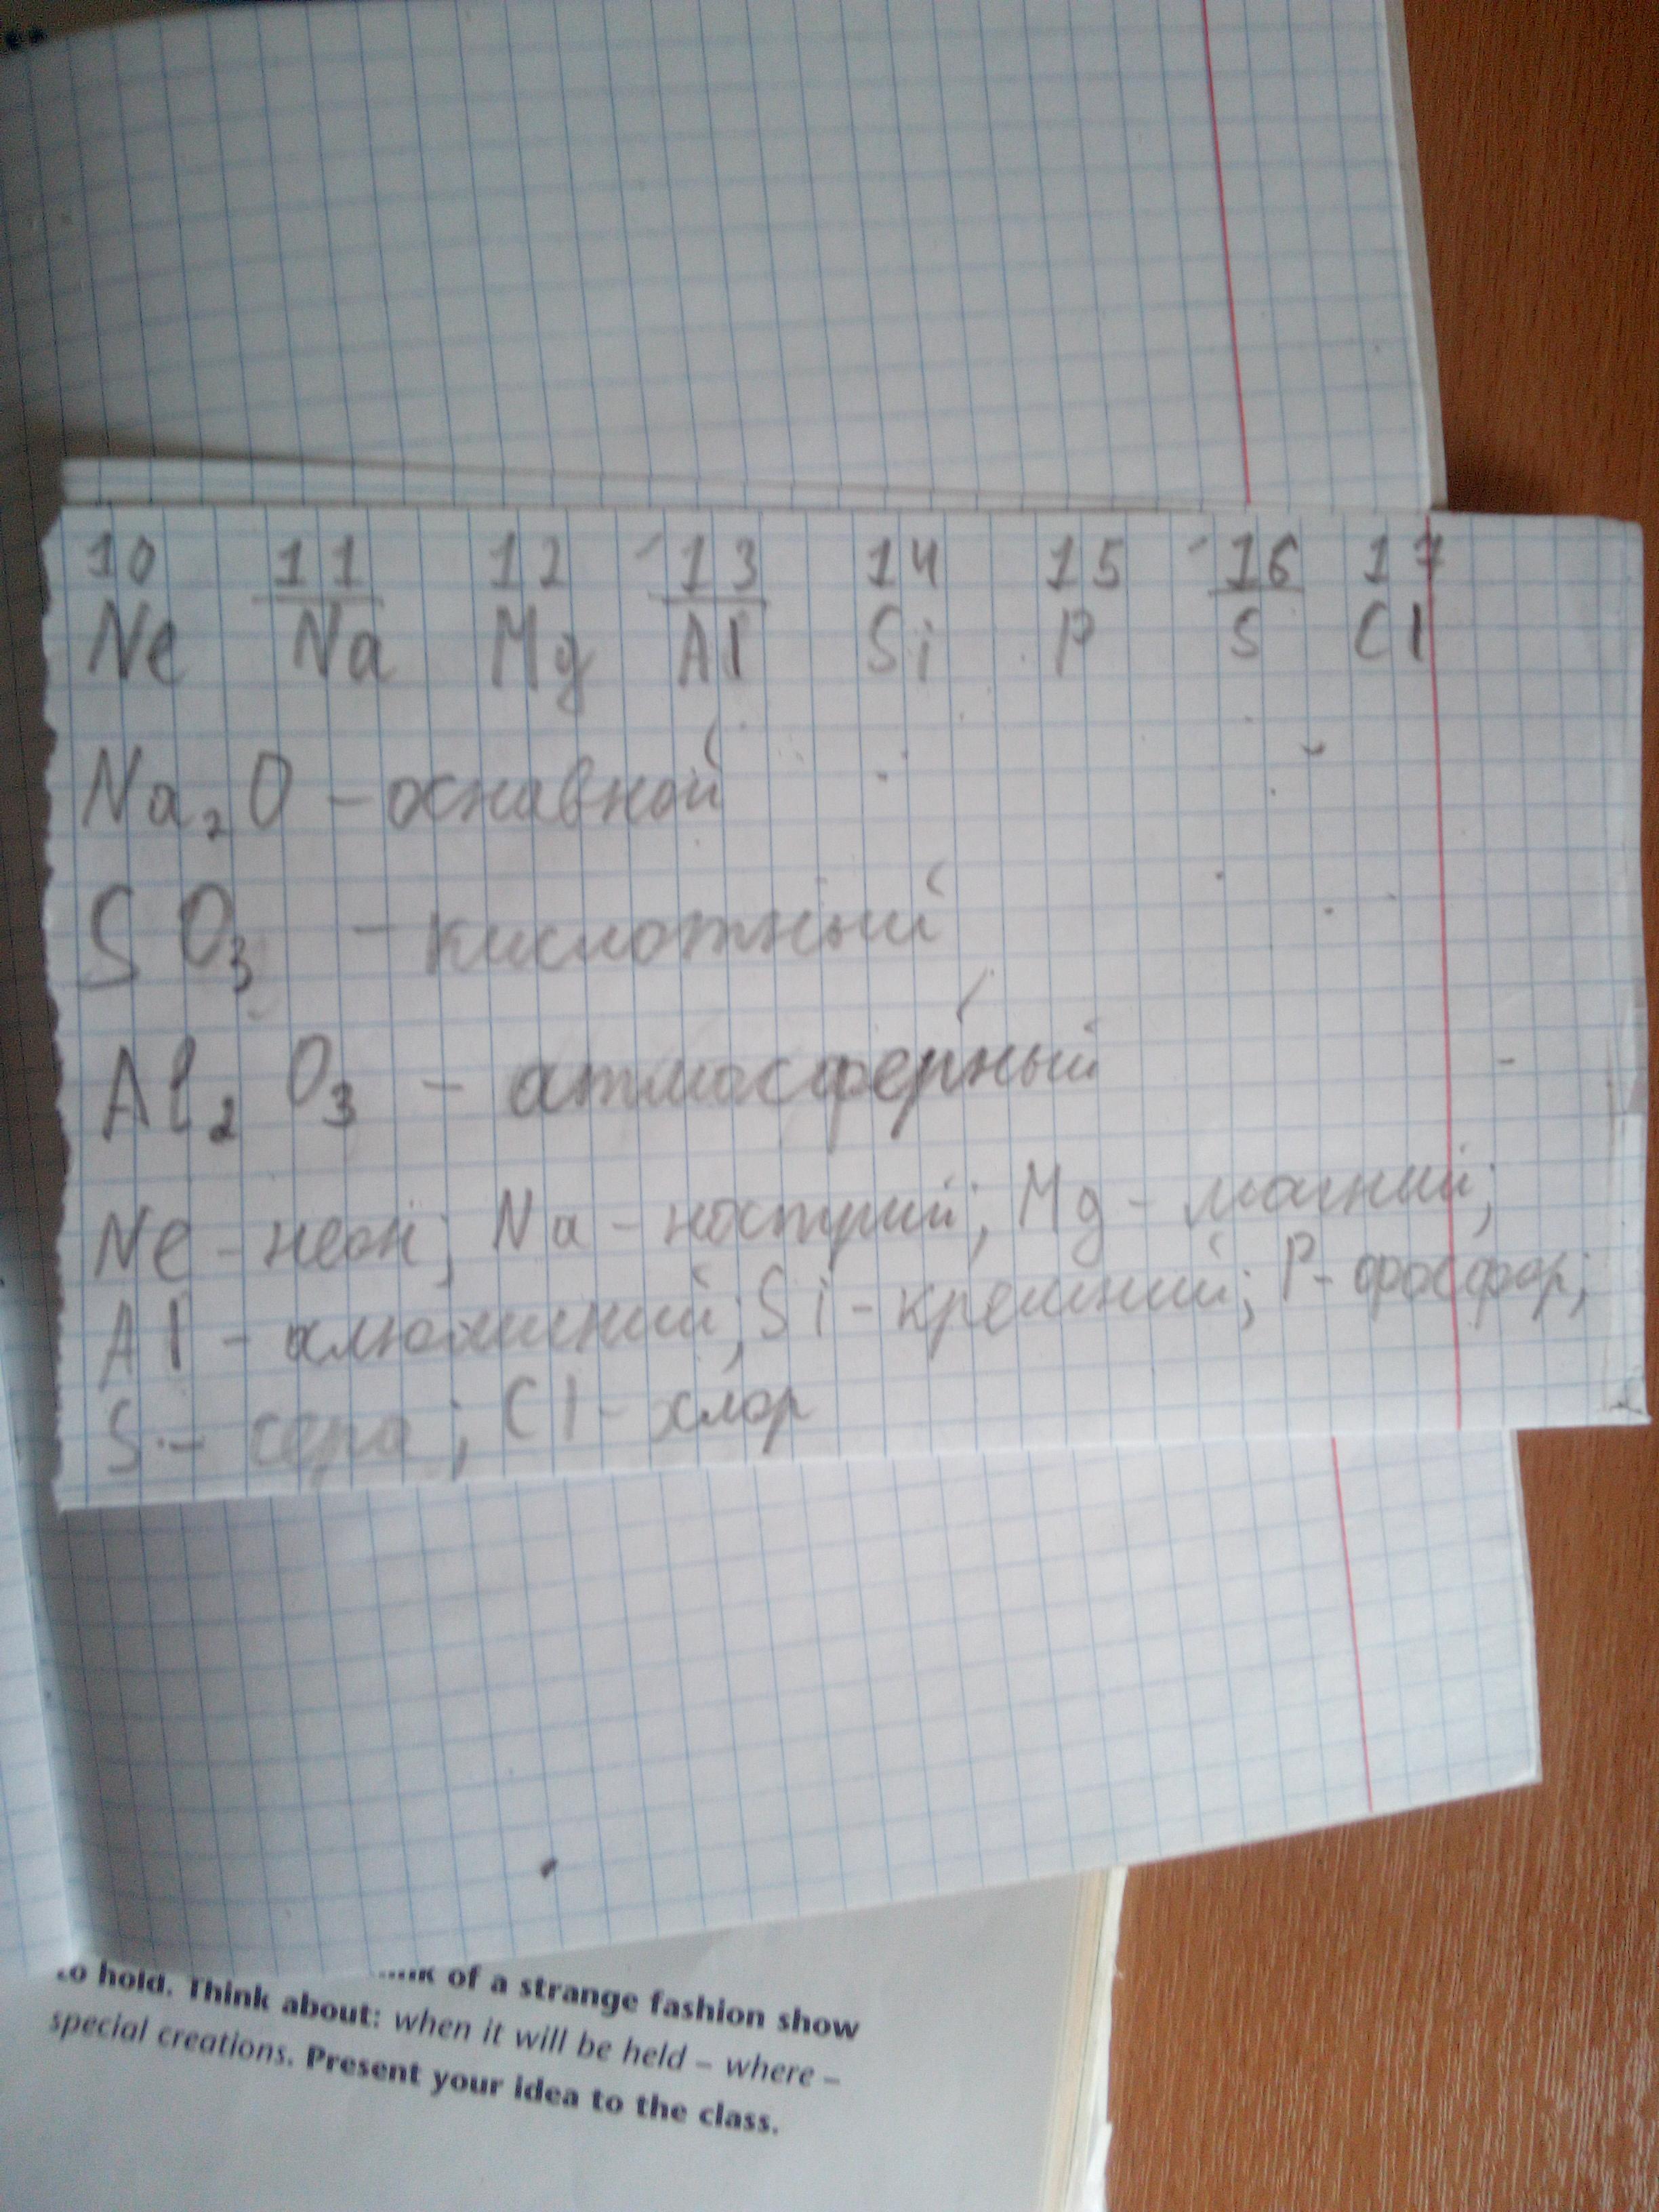 10 11 12 13 14 15 16 17
Ne Na Mg Al Si P S Cl
Na₂O – оснавной
SO₃ – кислотный
Al₂O₃ – атмосферный
Ne – неон; Na – настрий; Mg – магний;
Al – алюминий; Si – кремний; P – фосфор;
S – сера; Cl – хлор
of a strange fashion show
to hold. Think about: when it will be held – where –
special creations. Present your idea to the class.